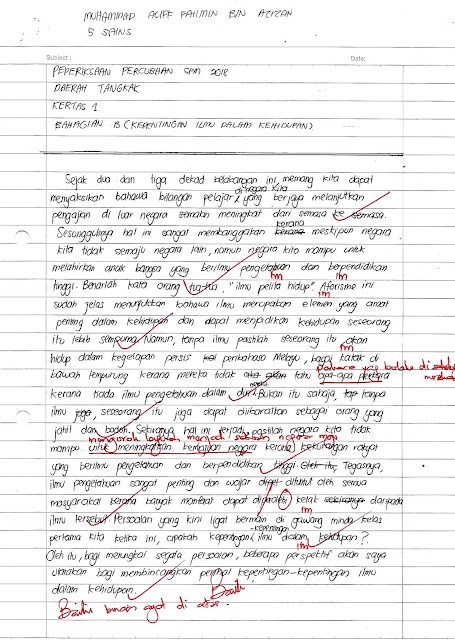 MUHAMMAD ALIFF FAHMIN BIN AZIZAN
5 SAINS
Subject :
Date:
PEPERIKSAAN PERCUBAAN SPM 2018
DAERAH TANGKAK
KERTAS 1
BAHAGIAN B (KEPENTINGAN ILMU DALAM KEHIDUPAN)
Sejak dua dan tiga dekad belakangan ini, memang kita dapat
di negara kita
menyaksikan bahawa bilangan pelajar yang berjaya melanjutkan
pengajian di luar negara semakin meningkat dari semasa ke semasa.
kerana
Sesungguhnya hal ini sangat membanggakan kerana meskipun negara
kita tidak semaju negara lain, namun negara kita mampu untuk
melahirkan anak bangsa yang berilmu pengetahuan dan berpendidikan
tm tm
tinggi. Benarlah kata orang tua-tua, "ilmu pelita hidup". Aforisme ini
tm
sudah jelas menunjukkan bahawa ilmu merupakan elemen yang amat
penting dalam kehidupan dan dapat menjadikan kehidupan seseorang
itu lebih sempurna. Namun, tanpa ilmu pastilah seseorang itu akan
tm
hidup dalam kegelapan persis peribahasa Melayu, bagai katak di
bawah tempurung kerana mereka tidak tahu apa-apa perkara
kerana tiada ilmu pengetahuan dalam diri. Bukan itu sahaja, tanpa
ilmu juga, seseorang itu juga dapat diibaratkan sebagai orang yang
jahil dan bodoh. Sekiranya hal ini terjadi, pastilah negara kita tidak
menjadi sebuah negara maju
mampu untuk meningkatkan kemajuan negara kerana kekurangan rakyat
yang berilmu pengetahuan dan berpendidikan tinggi. Oleh itu, Tegasnya,
ilmu pengetahuan sangat penting dan wajar dituntut oleh semua
masyarakat kerana banyak manfaat dapat diperolehi kelak daripada
tm
ilmu tersebut. Persoalan yang kini ligat bermain di gawang minda kelas
kepentingan
pertama kita ketika ini, apakah kepentingan ilmu dalam kehidupan?
tm
Oleh itu, bagi merungkai segala persoalan, beberapa perspektif akan saya
utarakan bagi membincangkan perihal kepentingan-kepentingan ilmu
dalam kehidupan.
Baiki
Baiki binaan ayat di atas.